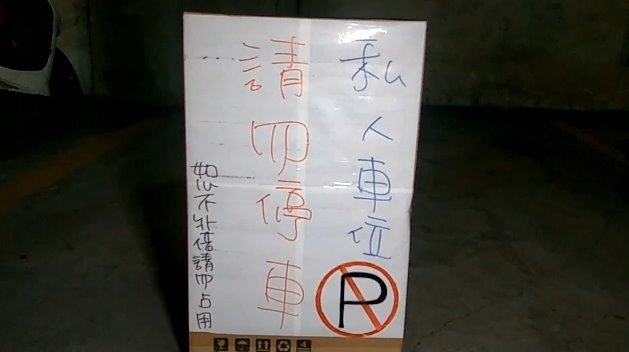 私人車位
P
請勿停車
如不外借請勿占用